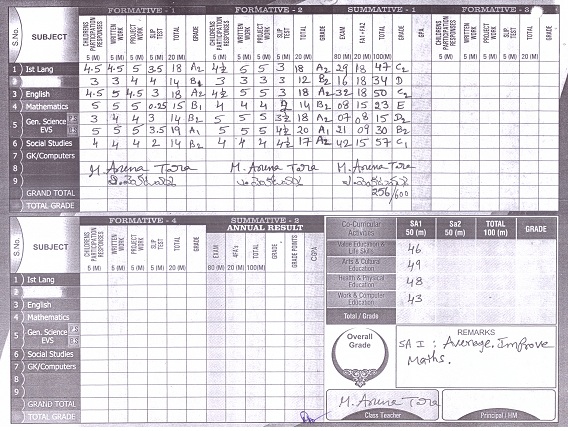 FORMATIVE - 1 FORMATIVE - 2 SUMMATIVE - 1 FORMATIVE - 3
S.No. SUBJECT CHILDRENS PARTICIPATION RESPONSES WRITTEN WORK PROJECT WORK SLIP TEST TOTAL GRADE CHILDRENS PARTICIPATION RESPONSES WRITTEN WORK PROJECT WORK SLIP TEST TOTAL GRADE EXAM FA1+FA2 TOTAL GRADE SPA
5 (M) 5 (M) 5 (M) 5 (M) 20 (M) 5 (M) 5 (M) 5 (M) 5 (M) 20 (M) 80 (M) 20 (M) 100(M)
1 Ist Lang 4.5 4.5 5 3.5 18 A2 4½ 5 5 3 18 A2 29 18 47 C2
2 3 3 4 4 14 B2 3 3 3 3 12 B2 16 18 34 D
3 English 4.5 5 4.5 3 18 A2 4½ 5 5 3 18 A2 32 18 50 C2
4 Mathematics 5 5 5 0.25 15 B1 4 4 4 2 14 B2 08 15 23 E
5 Gen. Science P.S 3 4 4 3 14 B2 5 5 5 3½ 18 A2 07 08 15 D2
EVS 5 5 5 3.5 19 A1 5 5 5 4½ 20 A1 21 09 30 B2
6 Social Studies 4 4 4 2 14 B2 4 4 4 4½ 17 A2 42 15 57 C1
7 GK/Computers
8 M. Aruna Tara M. Aruna Tara M. Aruna Tara
9
GRAND TOTAL 256/600
TOTAL GRADE
FORMATIVE - 4 SUMMATIVE - 2
ANNUAL RESULT
S.No. SUBJECT CHILDRENS PARTICIPATION RESPONSES WRITTEN WORK PROJECT WORK SLIP TEST TOTAL GRADE EXAM 4FA's TOTAL GRADE GRADE POINTS CGPA
5 (M) 5 (M) 5 (M) 5 (M) 20 (M) 80 (M) 20 (M) 100(M)
1 Ist Lang
2
3 English
4 Mathematics
5 Gen. Science P.S
EVS
6 Social Studies
7 GK/Computers
8
9
GRAND TOTAL
TOTAL GRADE
Co-Curricular Activities SA1 50 (m) Sa2 50 (m) TOTAL 100 (m) GRADE
Value Education & Life Skills 46
Arts & Cultural Education 49
Health & Physical Education 48
Work & Computer Education 43
Total / Grade
Overall Grade
REMARKS
SA I : Average. Improve
Maths.
M. Aruna Tara
Class Teacher Principal / HM